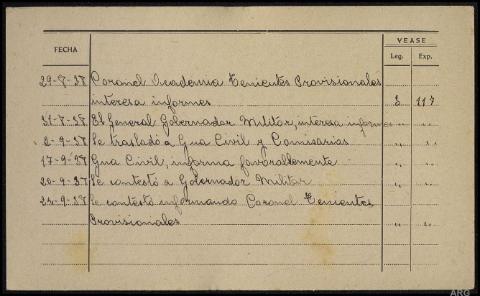 VEASE
FECHA
Leg. Exp.
29-8-38 Coronel Academia Tenientes Provisionales
interesa informes 3 117
31-8-38 El General Gobernador Militar, interesa informes " "
2-9-38 Se trasladó a Gua Civil y Comisarias " "
17-9-38 Gua Civil, informa favorablemente " "
20-9-38 Se contestó a Gobernador Militar " "
24-9-38 Se contestó informando Coronel Tenientes
Provisionales " "
ARG